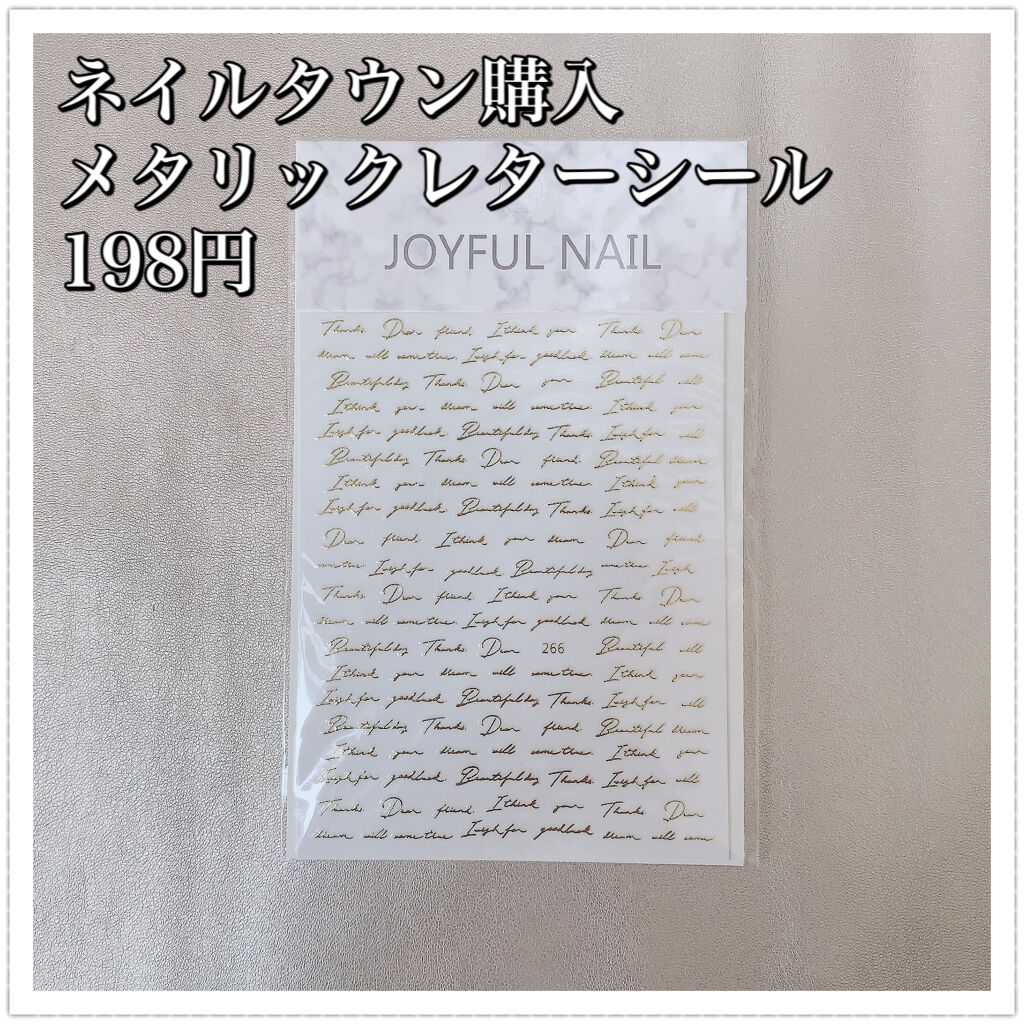 ネイルタウン購入
メタリックレターシール
198円
JOYFUL NAIL
Thanks. Dear friend. I think your Thanks. Dear
dream will come true. I wish for good luck dream will come
Beautiful day Thanks. Dear your Beautiful will
I think your dream will come true. I think your
I wish for good luck. Beautiful day Thanks. I wish for will
Beautiful day Thanks. Dear friend. Beautiful dream
I think your dream will come true. I think your
I wish for good luck. Beautiful day Thanks. I wish for will
Dear friend. I think your dream Dear friend
come true. I wish for good luck. Beautiful day come true I wish
Thanks. Dear friend. I think your Thanks. Dear
dream will come true. I wish for good luck dream will come
Beautiful day Thanks. Dear 266 Beautiful will
I think your dream will come true. I think your
I wish for good luck. Beautiful day Thanks. I wish for will
Beautiful day Thanks. Dear friend. Beautiful dream
I think your dream will come true. I think your
I wish for good luck. Beautiful day Thanks. I wish for will
Thanks. Dear friend. I think your Thanks. Dear
dream will come true I wish for good luck dream will come